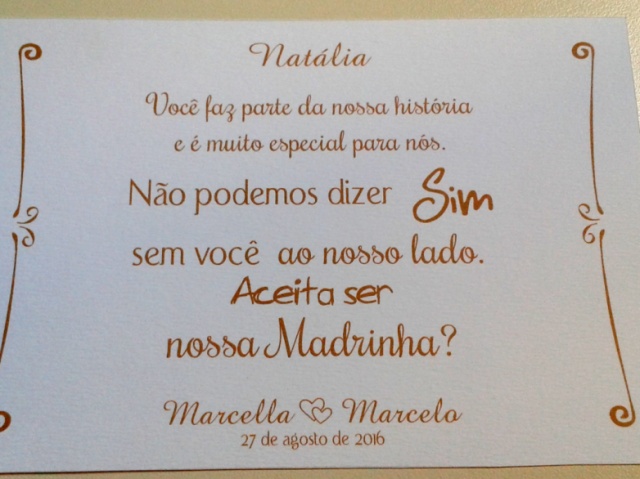 Natália
Você faz parte da nossa história
e é muito especial para nós.
Não podemos dizer Sim
sem você ao nosso lado.
Aceita ser
nossa Madrinha?
Marcella Marcelo
27 de agosto de 2016